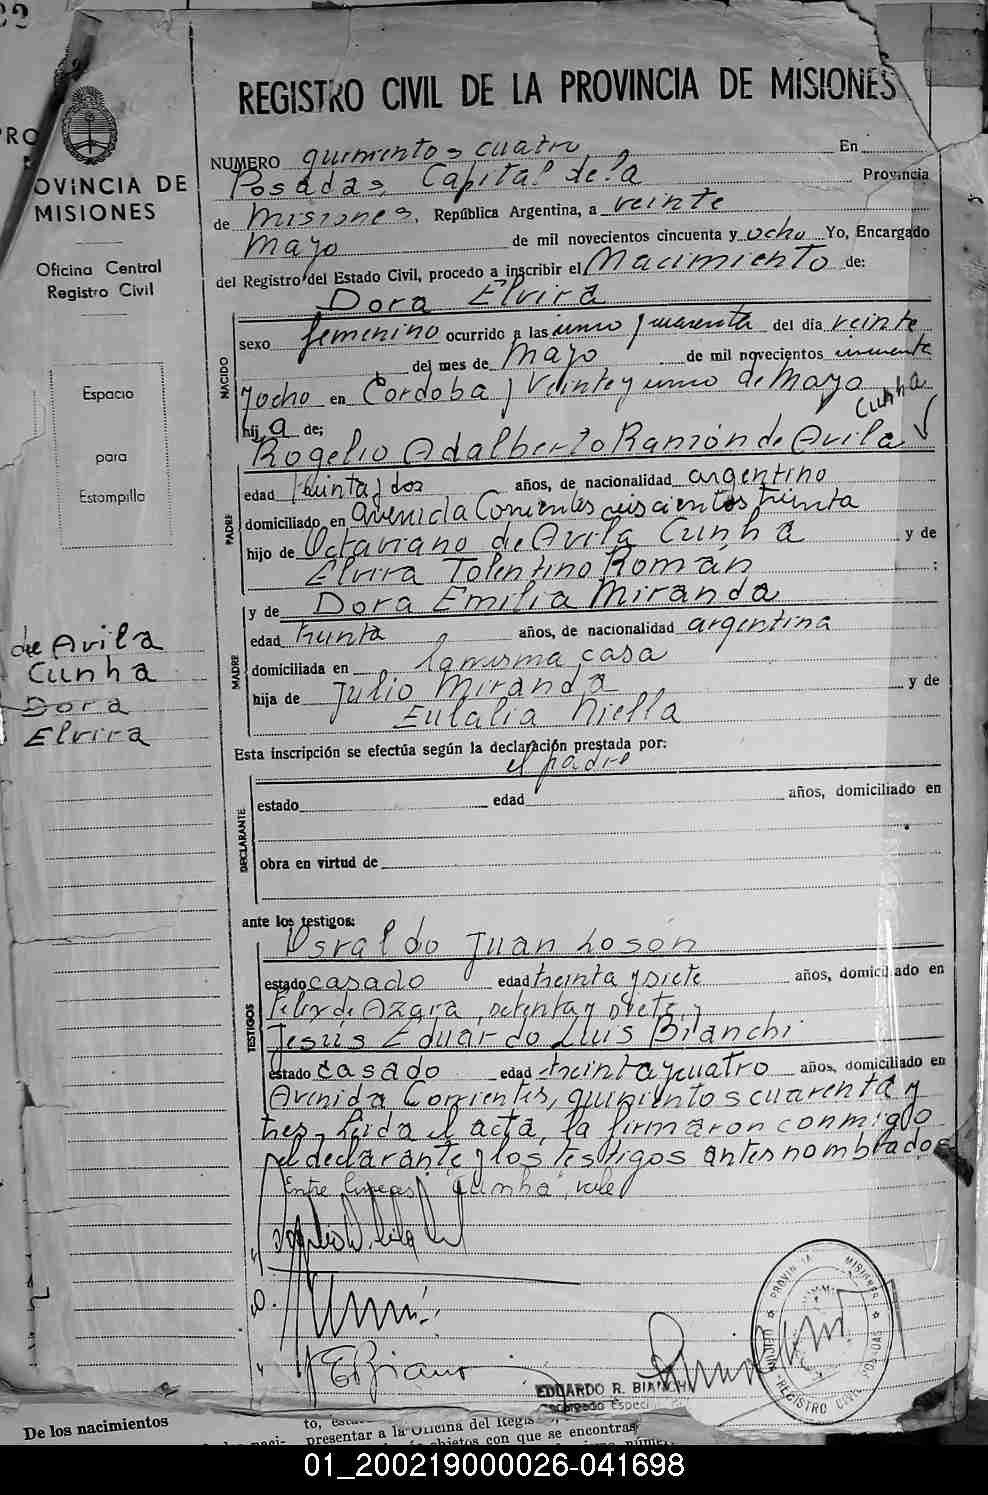 REGISTRO CIVIL DE LA PROVINCIA DE MISIONES
OVINCIA DE
MISIONES
Oficina Central
Registro Civil
Espacio
para
Estampilla
de Avila
Cunha
Dora
Elvira
NUMERO quinientos cuatro En
Posadas, Capital de la Provincia
de Misiones, República Argentina, a veinte
Mayo de mil novecientos cincuenta y ocho Yo, Encargado
del Registro del Estado Civil, procedo a inscribir el Nacimiento de:
Dora Elvira
NACIDO
sexo femenino ocurrido a las uno y cuarenta del día veinte
del mes de Mayo de mil novecientos cincuenta
y ocho en Cordoba y Veinte y uno de Mayo
Cunha
hij a de;
Rogelio Adalberto Ramón de Avila
PADRE
edad treinta y dos años, de nacionalidad argentino
domiciliado en avenida Corrientes seiscientos treinta
hijo de Octaviano de Avila Cunha y de
Elvira Tolentino Román :
y de Dora Emilia Miranda
MADRE
edad treinta años, de nacionalidad argentina
domiciliada en la misma casa
hija de Julio Miranda y de
Eulalia Niella
Esta inscripción se efectúa según la declaración prestada por:
el padre
DECLARANTE
estado edad años, domiciliado en
obra en virtud de
ante los testigos:
Osvaldo Juan Losón
TESTIGOS
estado casado edad treinta y siete años, domiciliado en
Felix de Azara, setenta y siete, y
Jesús Eduardo Luis Bianchi
estado casado edad treinta y cuatro años, domiciliado en
Avenida Corrientes, quinientos cuarenta y
tres. Leida el acta, la firmaron conmigo
el declarante y los testigos antes nombrados
Entre lineas "Cunha", vale
PROVINCIA MISIONES
OFICINA REGISTRO CIVIL POSADAS
EDUARDO R. BIANCHI
Encargado Especi
De los nacimientos
presentar a la Oficina del Regis
objetos con que se encontras
01_200219000026-041698